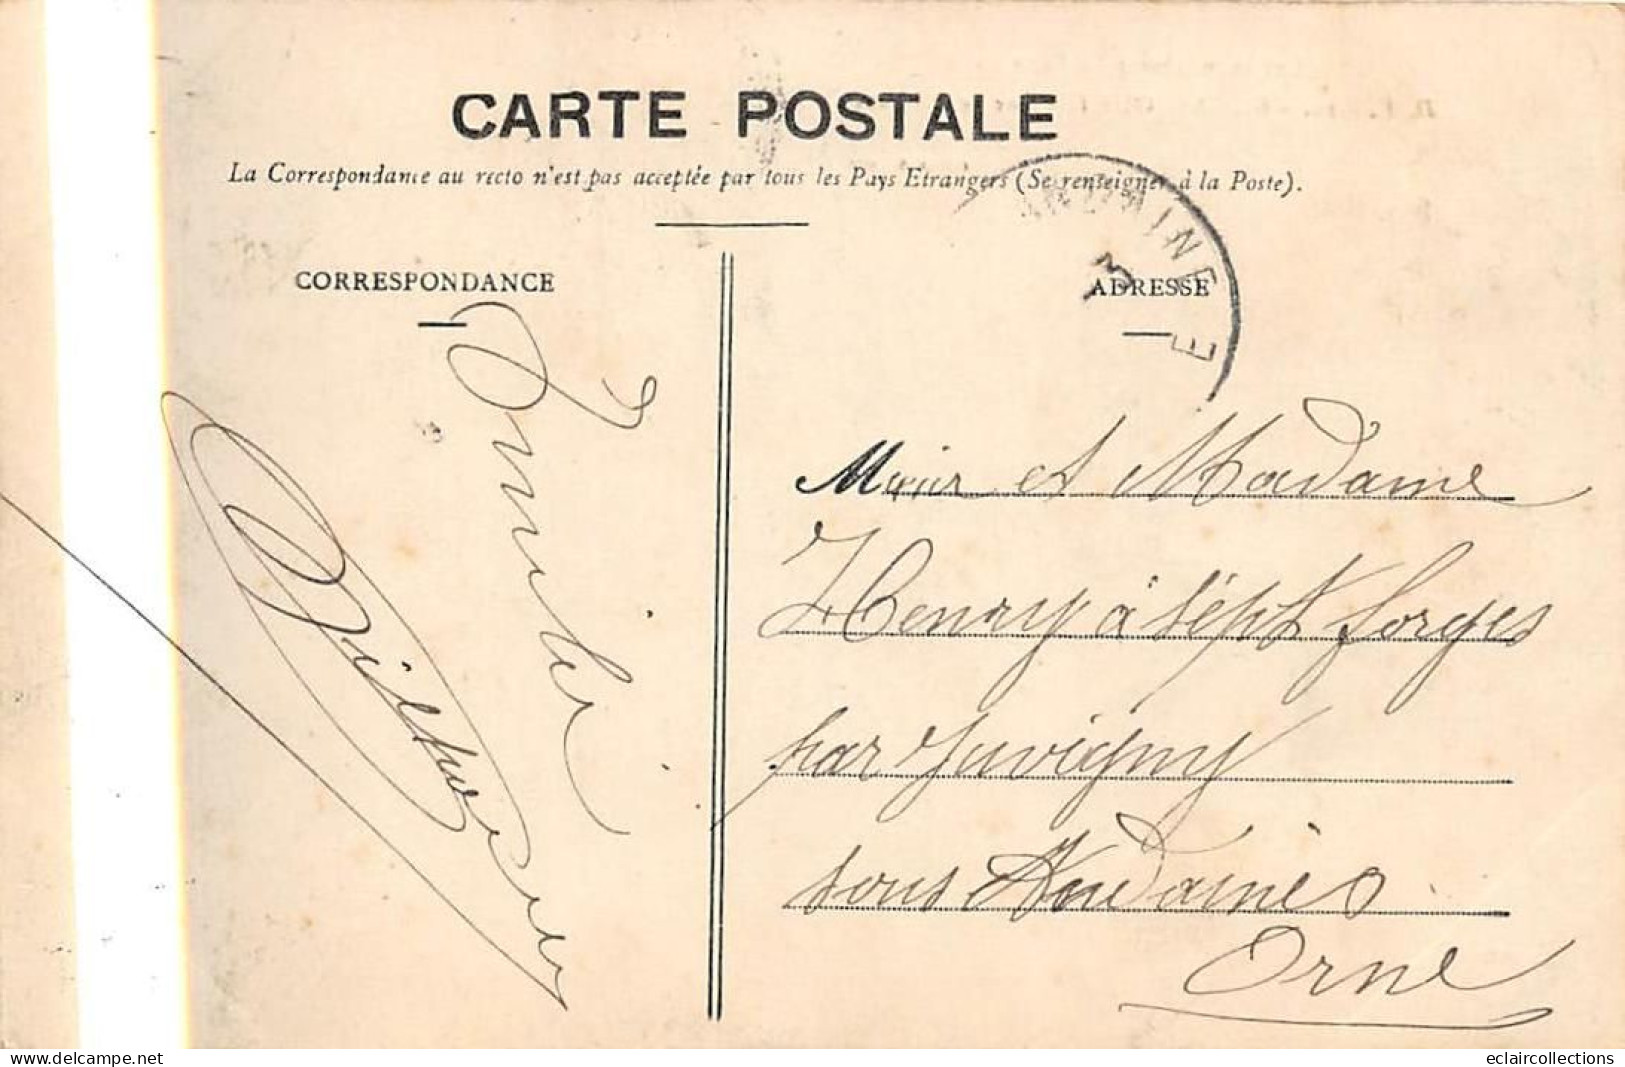 CARTE POSTALE
La Correspondance au recto n'est pas acceptée par tous les Pays Etrangers (Se renseigner à la Poste).
CORRESPONDANCE
ADRESSE
INE
E
et Madame
Henry à Sept forges
par Juvigny
sous Andaines
Orne
eclaircollections